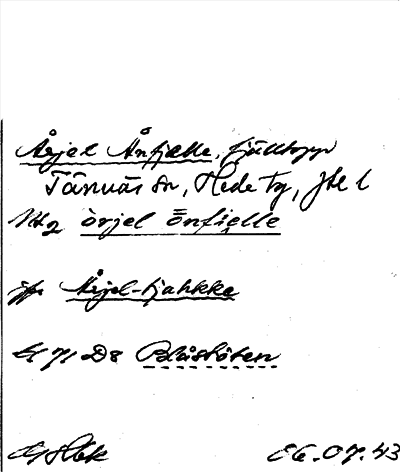 Årjel Ånfjelle, fjälltopp
Tännäs sn, Hede tg, Jtl l
òrjel Ōnfielle
jfr Årjel-tjahkke
71 D8 Blåstöten
06.07.43